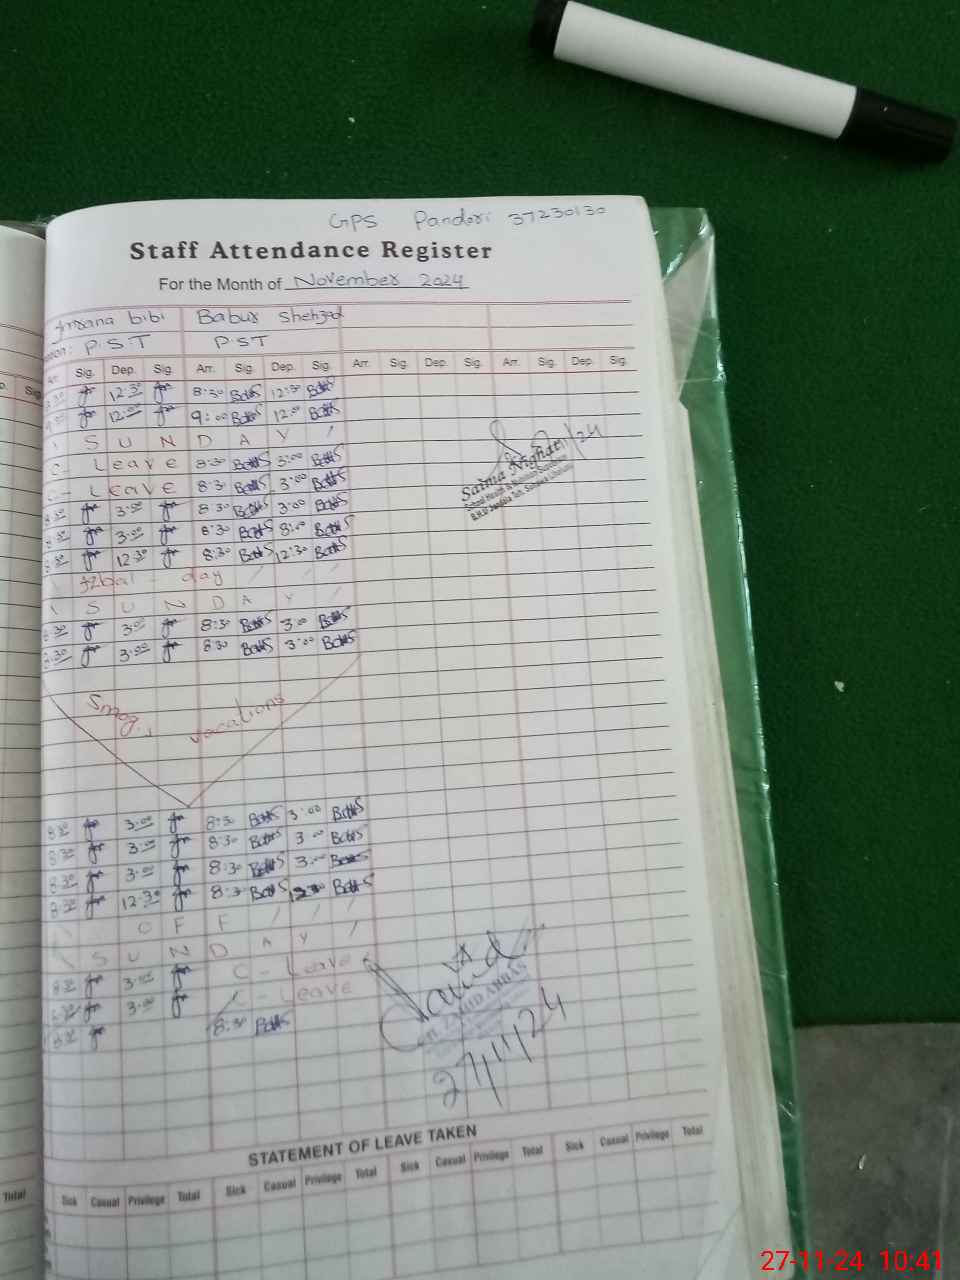 GPS Pandori 37230130
Staff Attendance Register
For the Month of November 2024
bibi Babur Shehzad
P.S.T P.S.T
Arr. Sig. Dep. Sig. Arr. Sig. Dep. Sig. Arr. Sig. Dep. Sig. Arr. Sig. Dep. Sig.
12:30 8:30 12:30
12:00 9:00 12:00
S U N D A Y
C - Leave 8:30 3:00
C - Leave 8:30 3:00
8:30 3:00 8:30 3:00
8:30 3:00 8:30
8:30 12:30 8:30 12:30
day
S U N D A Y
8:30 3:00 8:30 3:00
8:30 3:00 8:30 3:00
Smog, vacations
8:30 3:00 8:30 3:00
8:30 3:00 8:30 3:00
8:30 3:00 8:30 3:00
8:30 12:30 8:30
O F F
S U N D A Y
8:30 3:00 C - Leave
8:30 3:00 C - Leave
8:30 8:30
Saima Nighat
27/11/24
STATEMENT OF LEAVE TAKEN
Total Sick Casual Privilege Total Sick Casual Privilege Total Sick Casual Privilege Total Sick Casual Privilege Total
27-11-24 10:41